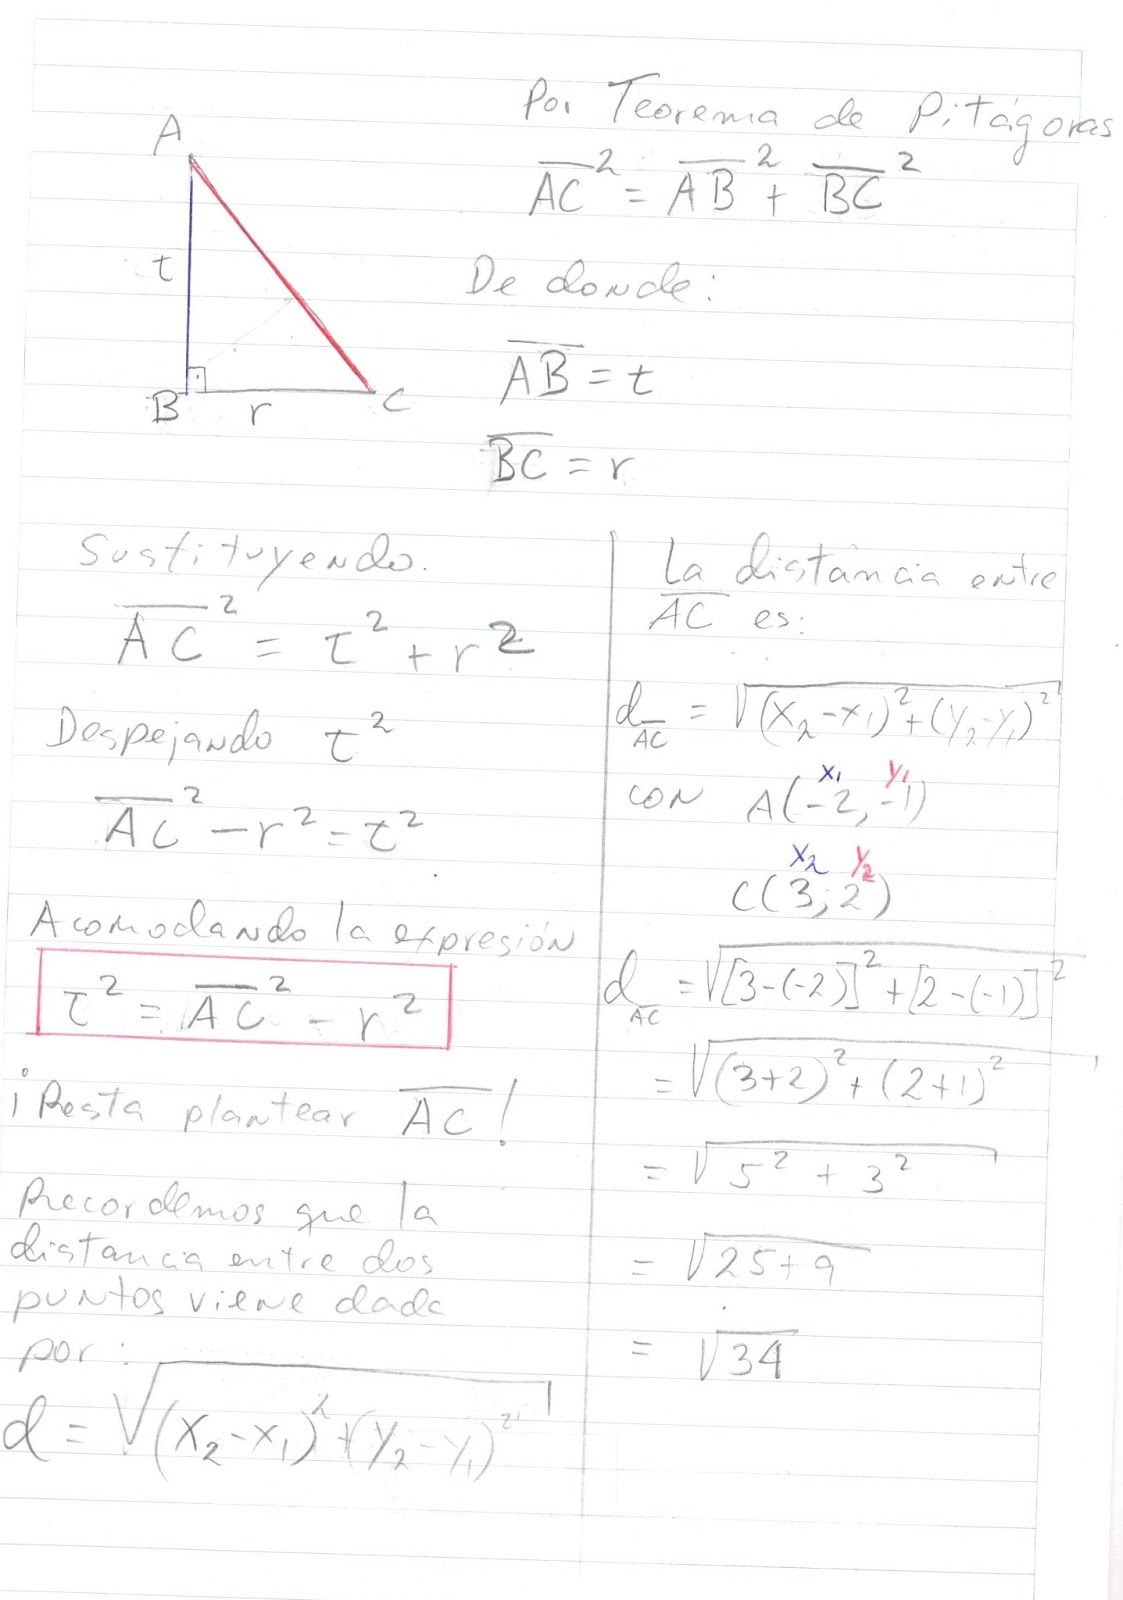 Por Teorema de Pitágoras
AC² = AB² + BC²
A
t
B
r
C
De donde:
AB = t
BC = r
Sustituyendo.
AC² = t² + r²
Despejando t²
AC² - r² = t²
Acomodando la expresión
t² = AC² - r²
¡Resta plantear AC!
Recordemos que la
distancia entre dos
puntos viene dada
por:
d = √(x₂-x₁)²+(y₂-y₁)²
La distancia entre
AC es:
d AC = √(x₂-x₁)²+(y₂-y₁)²
x₁ y₁
con A(-2,-1)
x₂ y₂
C(3;2)
d AC = √[3-(-2)]²+[2-(-1)]²
= √(3+2)²+(2+1)²
= √5² + 3²
= √25+9
= √34